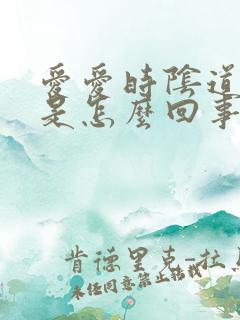 愛愛時陰道
是怎麼回事
肯德里克-拉
未经同意禁止转载